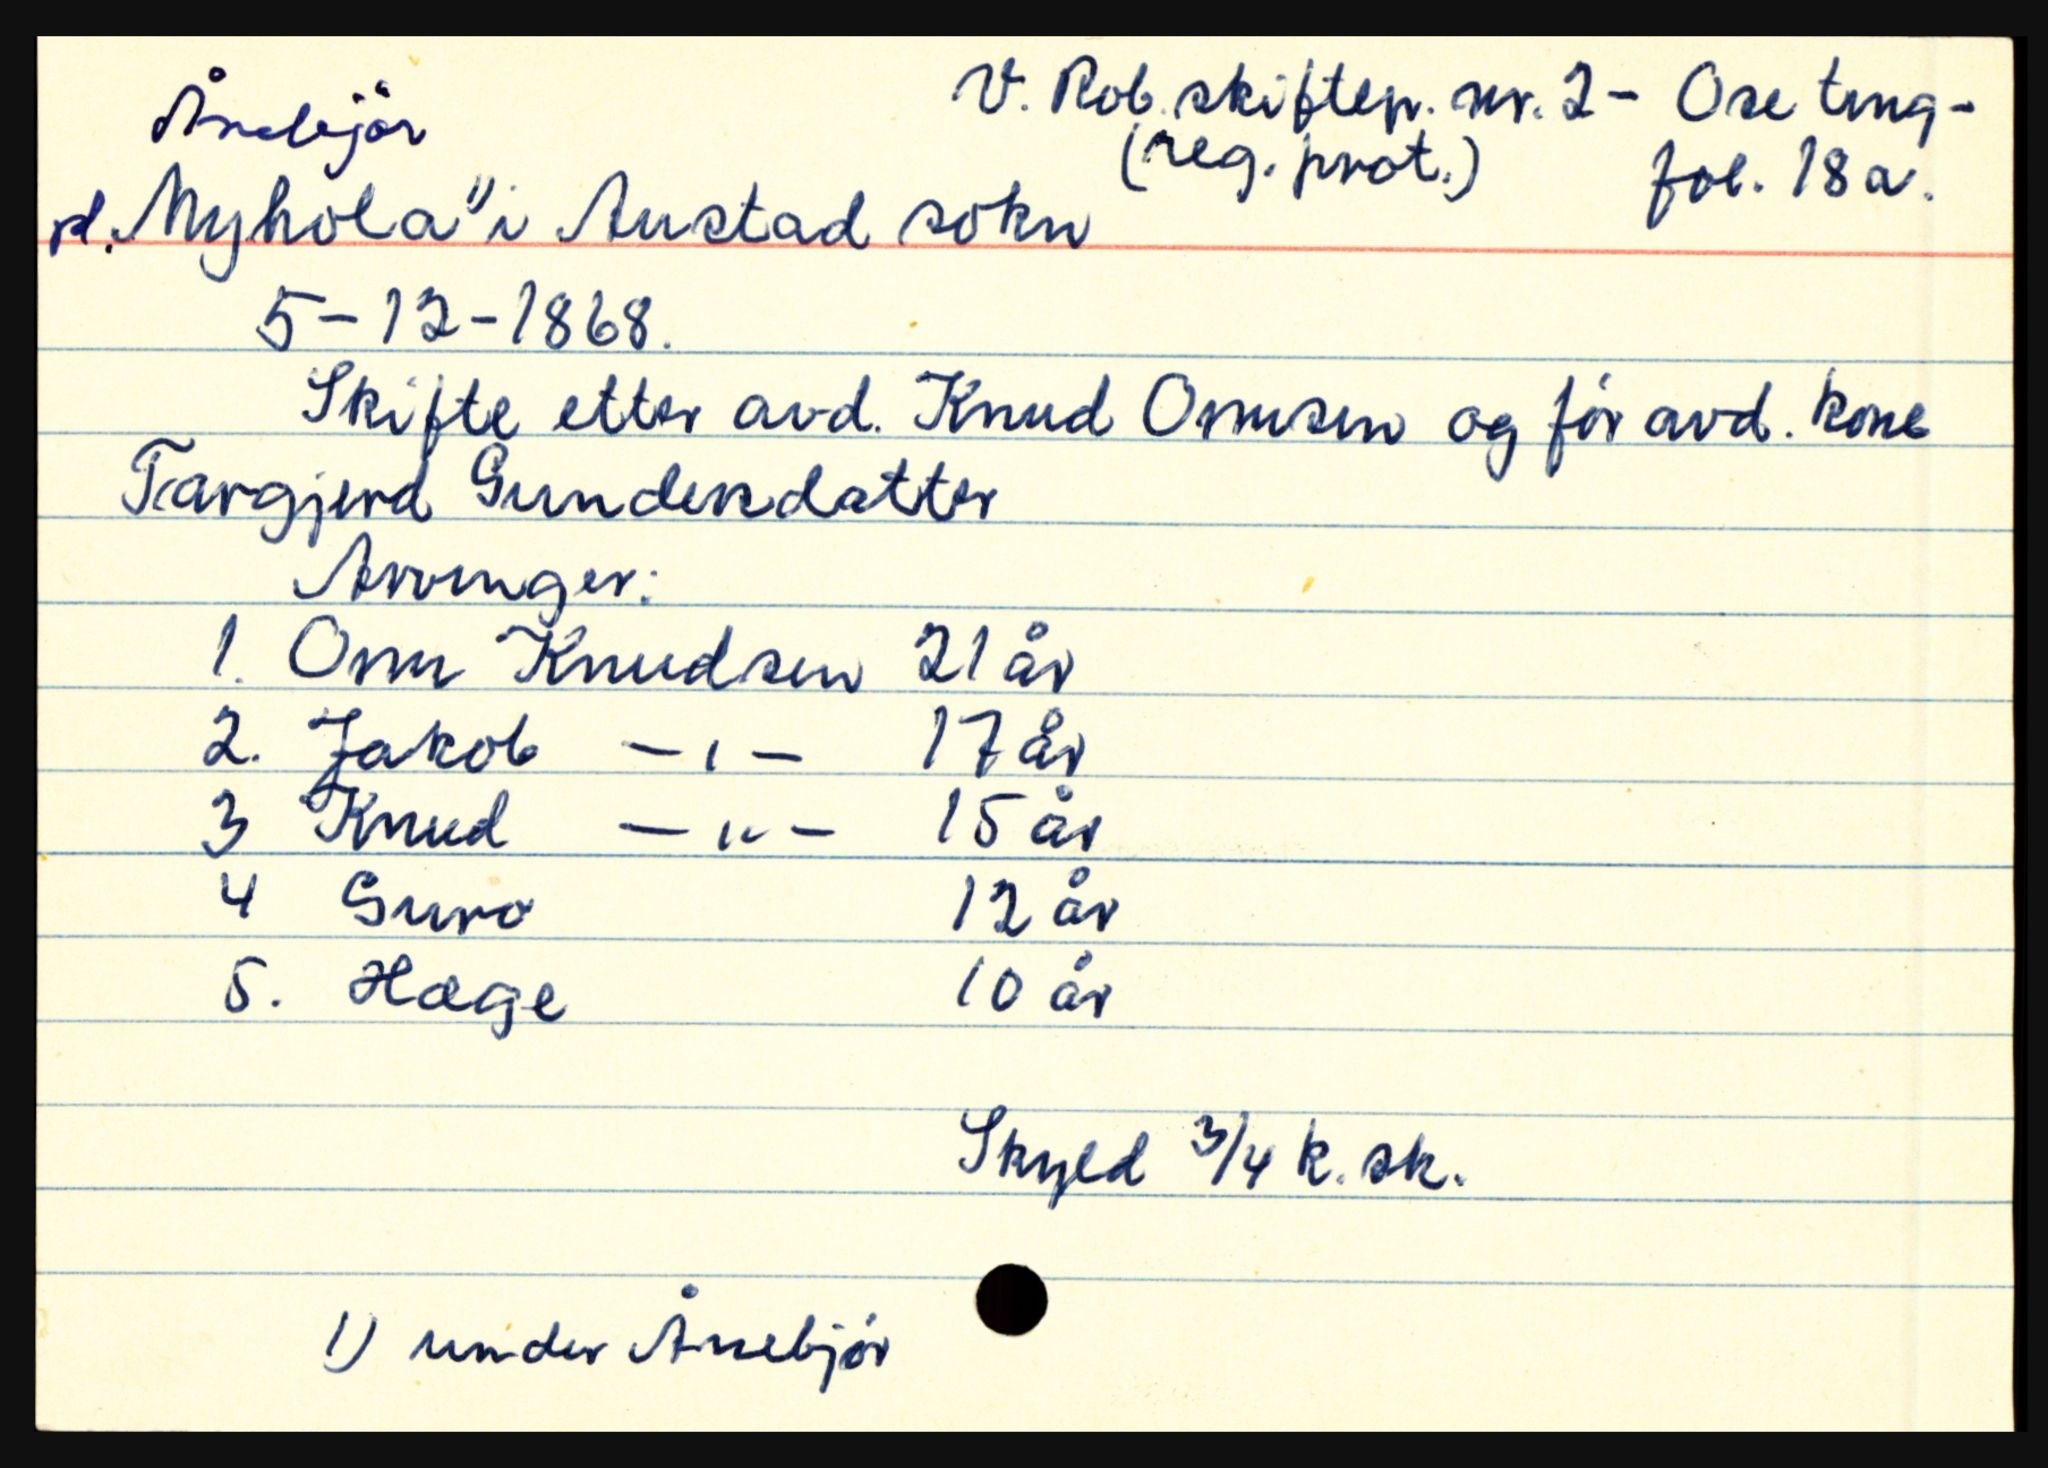 Ånebjör
V. Rob. skiftepr. nr. 2 - Ose ting-
(reg. prot.) fol. 18a.
pl. Myhola 1) i Austad sokn
5-12-1868.
Skifte etter avd. Knud Omsen og før avd. kone
Targjerd Gundersdatter
Arvinger:
1. Om Knudsen 21 år
2. Jakob -"- 17 år
3 Knud -"- 15 år
4 Guro 12 år
5. Hæge 10 år
Skyld 3/4 k. sk.
1) under Ånebjør